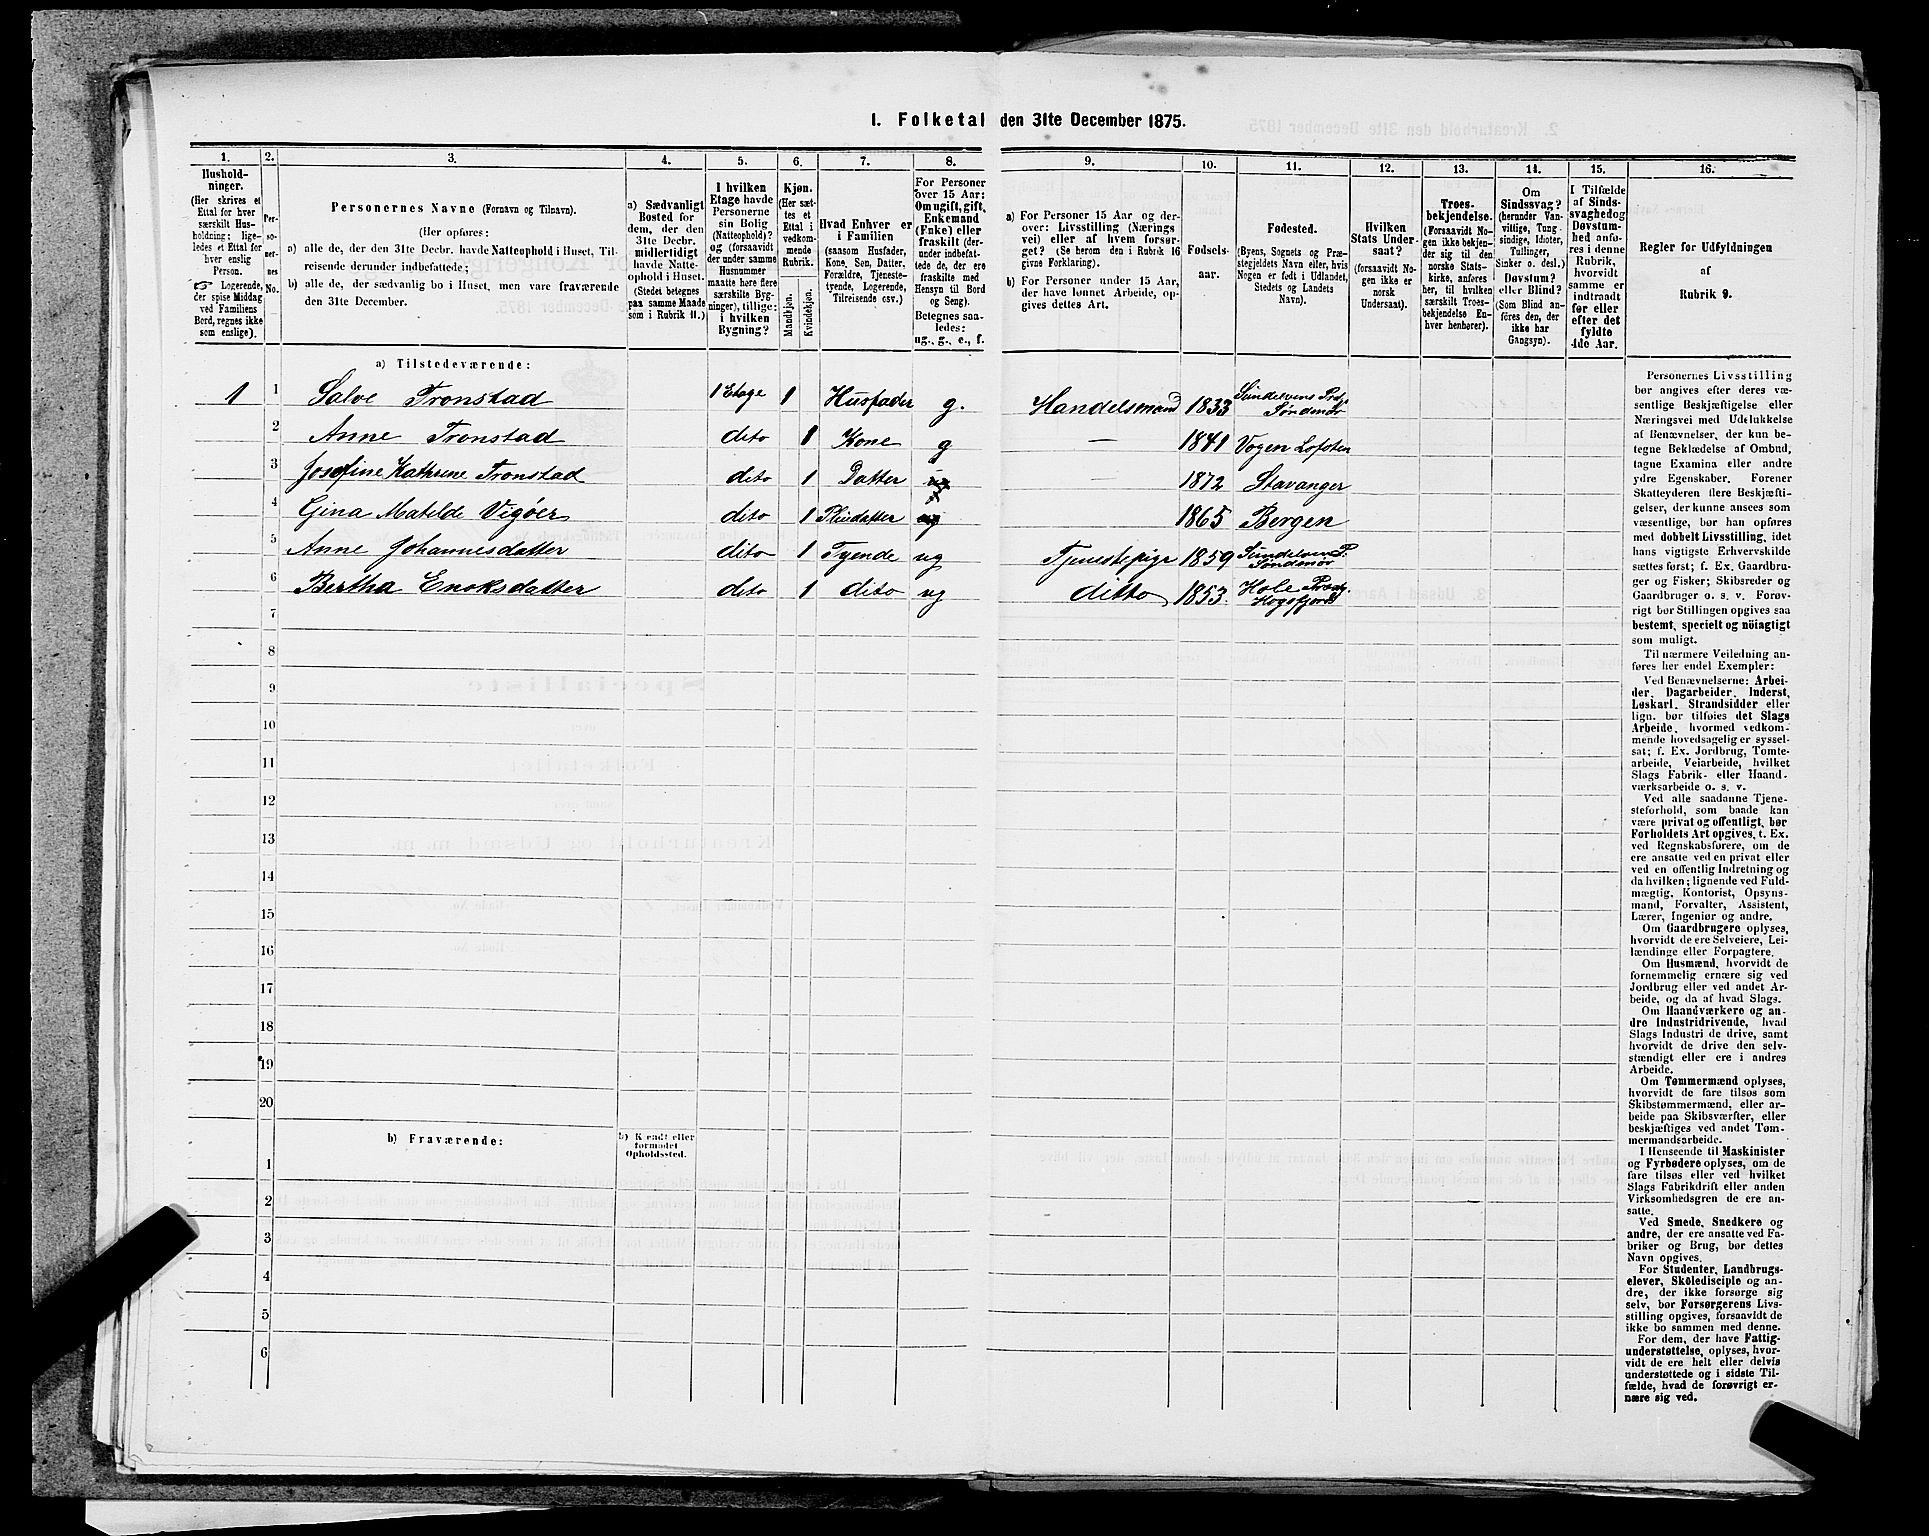 1. Folketal den 31te December 1875.
1. 2. 3. 4. 5. 6. 7. 8. 9. 10. 11. 12. 13. 14. 15. 16.
Hushold-
ninger.
(Her skrives et
Ettal for hver
særskilt Hus-
holdning; lige-
ledes et Ettal for
hver enslig
Person.
Logerende,
der spise Middag
ved Familiens
Bord, regnes ikke
som enslige).
Per-
so-
ner-
nes
No.
Personernes Navne (Fornavn og Tilnavn).
(Her opføres:
a) alle de, der den 31te Decbr. havde Natteophold i Huset, Til-
reisende derunder indbefattede;
b) alle de, der sædvanlig bo i Huset, men vare fraværende
den 31te December.
a) Sædvanligt
Bosted for
dem, der den
31te Decbr.
midlertidigt
havde Natte-
ophold i Huset.
(Stedet betegnes
paa samme Maade
som i Rubrik 11.)
I hvilken
Etage havde
Personerne
sin Bolig
(Natteophold)?
og (forsaavidt
der under samme
Husnummer
maatte høre flere
særskilte Byg-
ninger), tillige:
i hvilken
Bygning?
Kjøn.
(Her sæt-
tes et
Ettal i
vedkom-
mende
Rubrik.
Mandkjøn.
Kvindekjøn.
Hvad Enhver er
i Familien
(saasom Husfader,
Kone, Søn, Datter,
Forældre, Tjeneste-
tyende, Logerende,
Tilreisende osv.)
For Personer
over 15 Aar:
Om ugift, gift,
Enkemand
(Enke) eller
fraskilt (der-
under indbefat-
tede de, der ere
fraskilte med
Hensyn til Bord
og Seng).
Betegnes saa-
ledes:
ug., g., e., f.
a) For Personer 15 Aar og der-
over: Livsstilling (Nærings
vei) eller af hvem forsør-
get? (Se herom den i Rubrik 16
givne Forklaring).
b) For Personer under 15 Aar,
der have lønnet Arbeide, op-
gives dettes Art.
Fødsels-
aar.
Fødested.
(Byens, Sognets og Præ-
stegjeldets Navn eller, hvis
Nogen er født i Udlandet,
Stedets og Landets
Navn).
Hvilken
Stats Under-
saat?
(forsaavidt No-
gen ikke er
norsk
Undersaat).
Troes-
bekjendelse.
(Forsaavidt No-
gen ikke bekjen-
der sig til den
norske Stats-
kirke, anføres
her, til hvilken
særskilt Troes-
bekjendelse En-
hver henhører).
Om
Sindssvag?
(herunder Van-
vittige, Tung-
sindige, Idioter,
Tullinger,
Sinker o. desl.)
Døvstum?
eller Blind?
(Som Blind an-
føres den, der
ikke har
Gangsyn).
I Tilfælde
af Sinds-
svaghed og
Døvstum-
hed anfø-
res i denne
Rubrik,
hvorvidt
samme er
indtraadt
før eller
efter det
fyldte
4de Aar.
Regler for Udfyldningen
af
Rubrik 9.
a) Tilstedeværende:
1 1 Salve Tronstad 1 Etage 1 Husfader g. Handelsmand 1833 Sundelvens Prgj. Søndmør
2 Anne Tronstad dito 1 Kone g — 1841 Vogen Lofoten
3 Josefine Kathrine Tronstad dito 1 Datter ug — 1872 Stavanger
4 Gina Matilde Vigøer dito 1 Pleiedatter ug 1865 Bergen
5 Anne Johannesdatter dito 1 Tyende ug Tjenestepige 1859 Sundelven P. Søndmør
6 Bertha Enoksdatter dito 1 dito ug ditto 1853. Hole Præstg. Høgsfjord
7
8
9
10
11
12
13
14
15
16
17
18
19
20
b) Fraværende:
b) Kjendt eller
formodet
Opholdssted.
1
2
3
4
5
6
Personernes Livsstilling
bør angives efter deres væ-
sentlige Beskjæftigelse eller
Næringsvei med Udelukkelse
af Benævnelser, der kun be-
tegne Beklædelse af Ombud,
tagne Examina eller andre
ydre Egenskaber. Forener
Skatteyderen flere Beskjæfti-
gelser, der kunne ansees som
væsentlige, bør han opføres
med dobbelt Livsstilling, idet
hans vigtigste Erhvervskilde
sættes først; f. Ex. Gaardbru-
ger og Fisker; Skibsreder og
Gaardbruger o. s. v. Forøv-
rigt bør Stillingen opgives saa
bestemt, specielt og nöiagtigt
som muligt.
Til nærmere Veiledning an-
føres her endel Exempler:
Ved Benævnelserne: Arbei-
der, Dagarbeider, Inderst,
Løskarl, Strandsidder eller
lign. bør tilføies det Slags
Arbeide, hvormed vedkom-
mende hovedsagelig er syssel-
sat; f. Ex. Jordbrug, Tomte-
arbeide, Veiarbeide, hvilket
Slags Fabrik- eller Haand-
værksarbeide o. s. v.
Ved alle saadanne Tjene-
steforhold, som baade kan
være privat og offentligt, bør
Forholdets Art opgives, t. Ex.
ved Regnskabsførere, om de
ere ansatte ved en privat eller
ved en offentlig Indretning og
da hvilken; lignende ved Fuld-
mægtig, Kontorist, Opsyns-
mand, Forvalter, Assistent,
Lærer, Ingeniør og andre.
Om Gaardbrugere oplyses,
hvorvidt de ere Selveiere, Lei-
lændinge eller Forpagtere.
Om Husmænd, hvorvidt de
fornemmelig ernære sig ved
Jordbrug eller ved andet Ar-
beide, og da af hvad Slags.
Om Haandværkere og an-
dre Industridrivende, hvad
Slags Industri de drive, samt
hvorvidt de drive den selv-
stændigt eller ere i andres
Arbeide.
Om Tømmermænd oplyses,
hvorvidt de fare tilsøs som
Skibstømmermænd, eller ar-
beide paa Skibsværfter, eller
beskjæftiges ved andet Tøm-
mermandsarbeide.
I Henseende til Maskinister
og Fyrbødere oplyses, om de
fare tilsøs eller ved hvilket
Slags Fabrikdrift eller anden
Virksomhedsgren de ere an-
satte.
Ved Smede, Snedkere og
andre, der ere ansatte ved Fa-
briker og Brug, bør dettes
Navn opgives.
For Studenter, Landbrugs-
elever, Skoledisciple og an-
dre, der ikke forsørge sig
selv, bør Forsørgerens Livs-
stilling opgives, forsaavidt de
ikke bo sammen med denne.
For dem, der have Fattig-
understøttelse, oplyses, hvor-
vidt de ere helt eller delvis
understøttede og i sidste Til-
fælde, hvad de forøvrigt er-
nære sig ved.